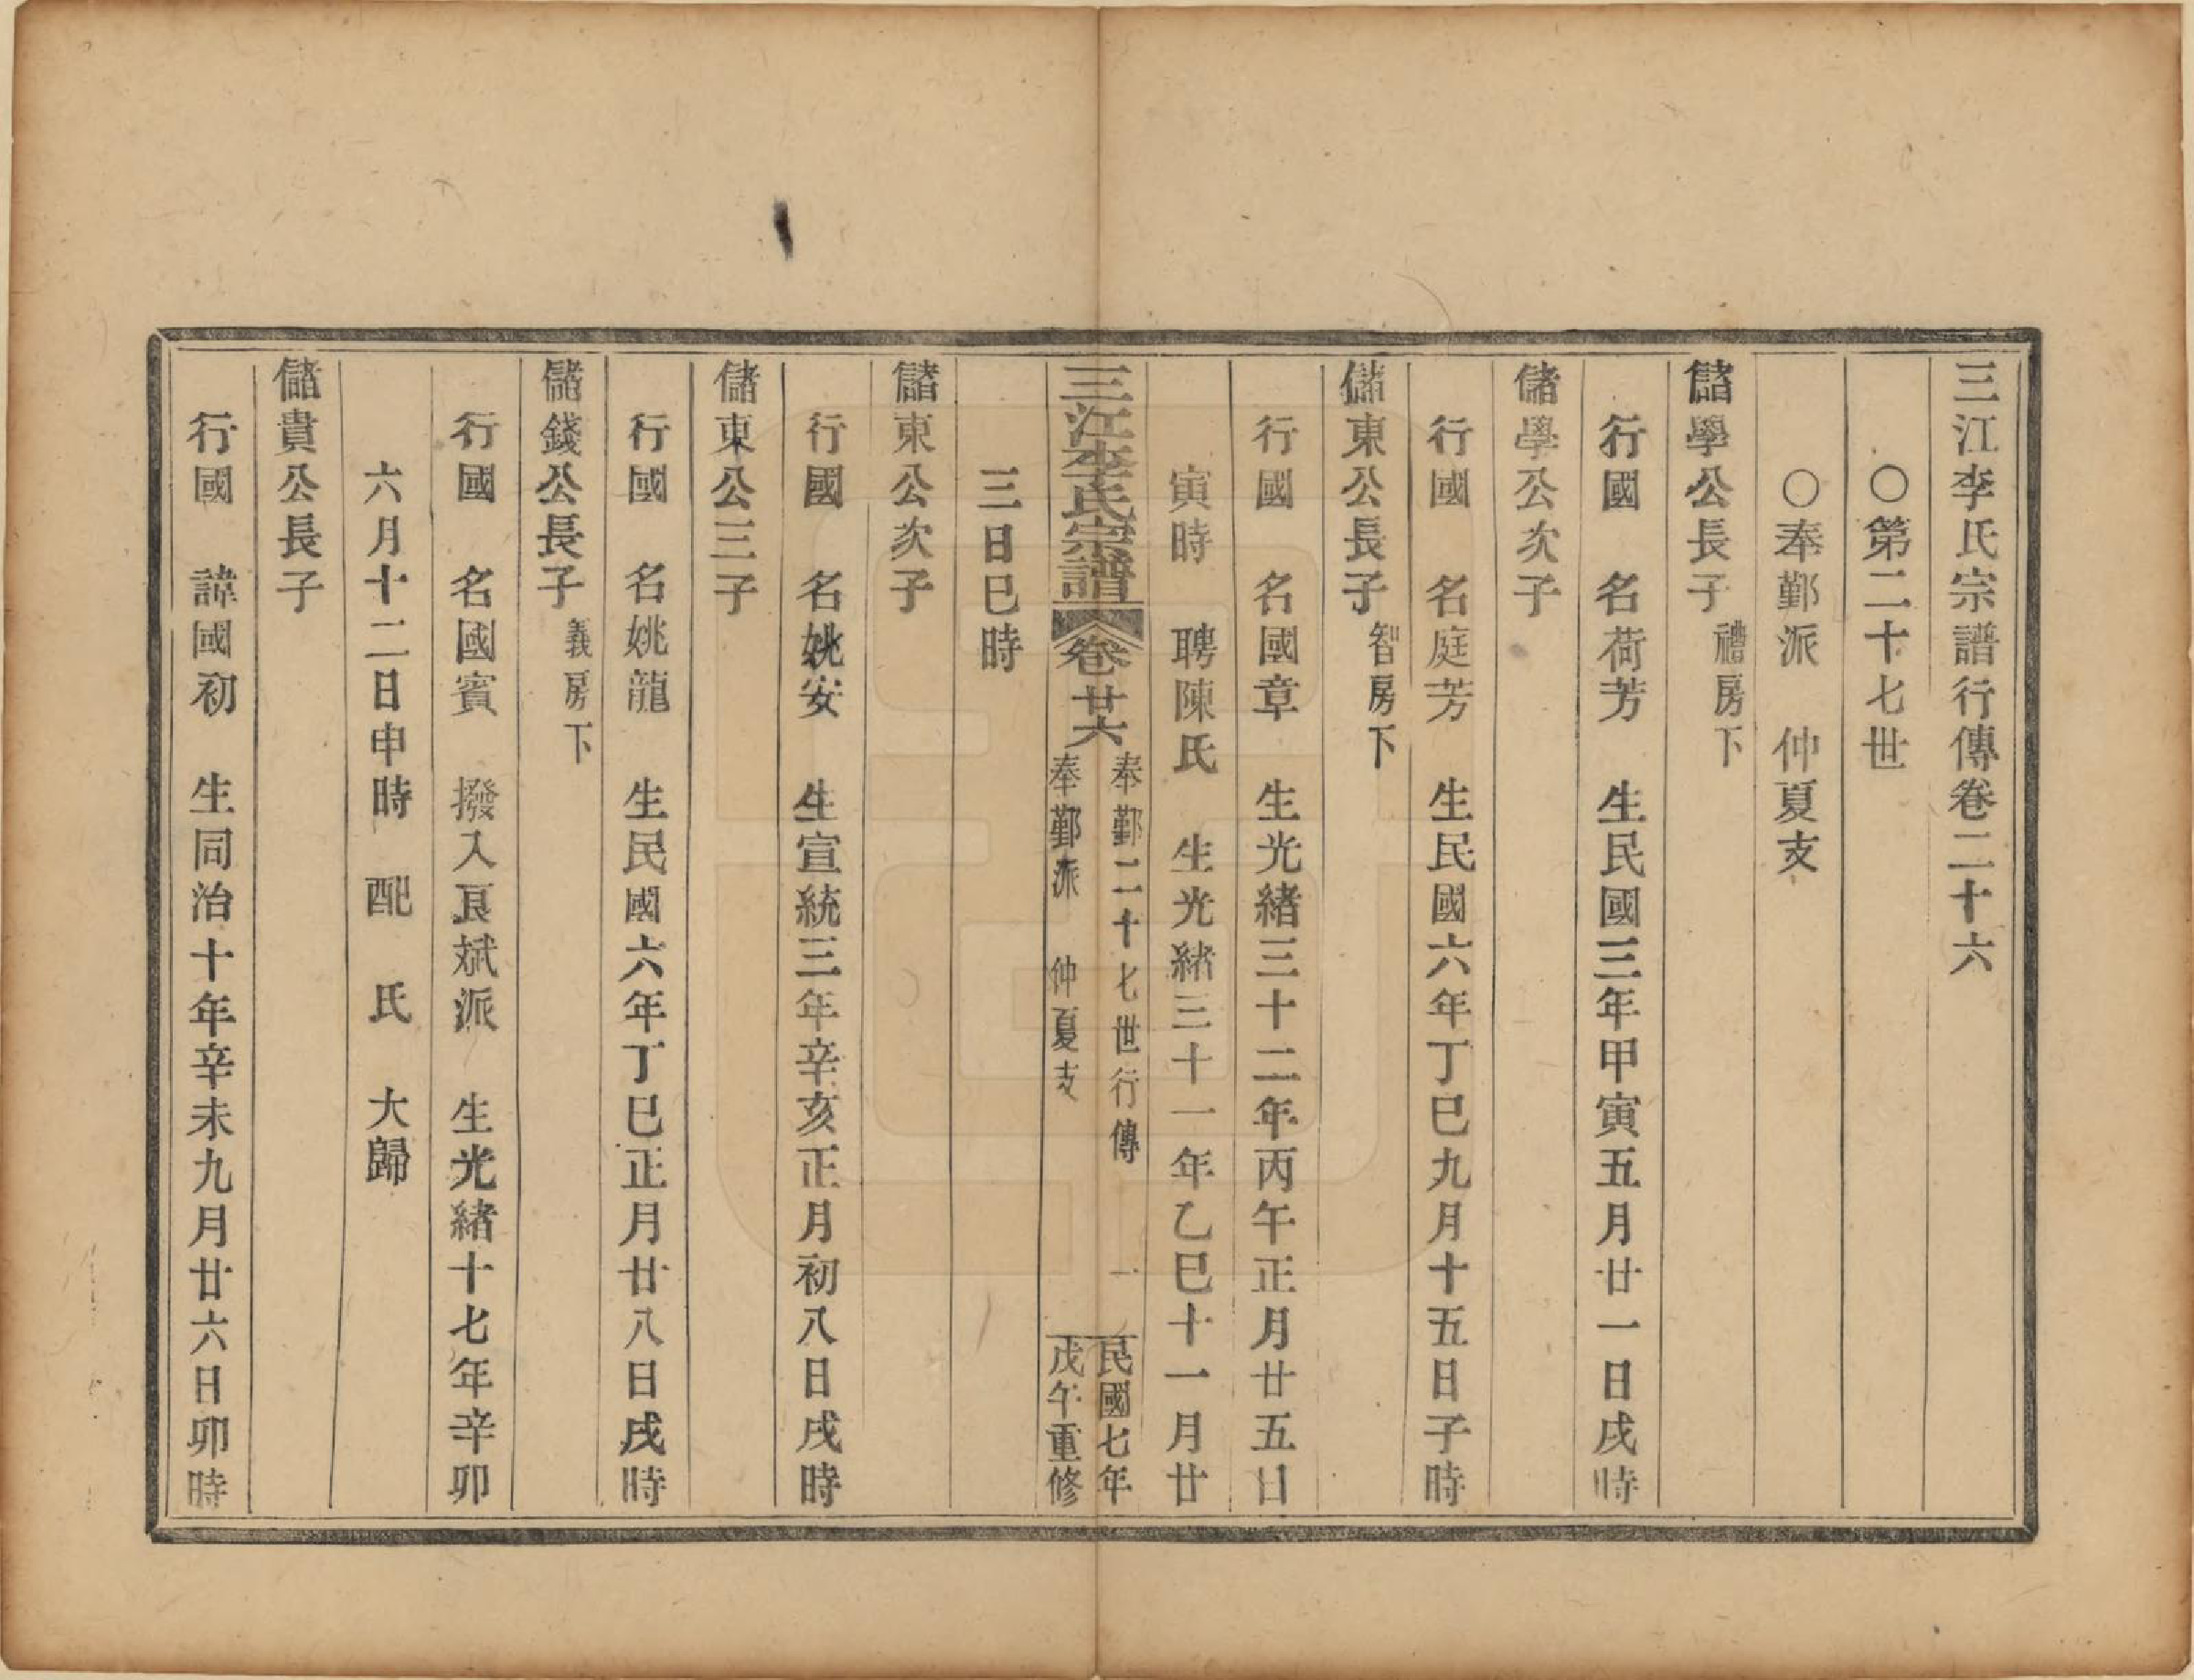 三江李氏宗譜行傳卷二十六
〇第二十七世
〇奉鄞派　仲夏支
儲學公長子 禮房下
行國　名荷芳　生民國三年甲寅五月廿一日戌時
儲學公次子
行國　名庭芳　生民國六年丁巳九月十五日子時
儲東公長子 智房下
行國　名國章　生光緒三十二年丙午正月廿五日
寅時　聘陳氏　生光緒三十一年乙巳十一月廿
三江李氏宗譜 卷廿六 奉鄞二十七世行傳 一 民國七年
奉鄞派　仲夏支 戊午重修
三日巳時
儲東公次子
行國　名姚安　生宣統三年辛亥正月初八日戌時
儲東公三子
行國　名姚龍　生民國六年丁巳正月廿八日戌時
儲錢公長子 義房下
行國　名國賓　撥入艮斌派　生光緒十七年辛卯
六月十二日申時　配　氏　大歸
儲貴公長子
行國　諱國初　生同治十年辛未九月廿六日卯時